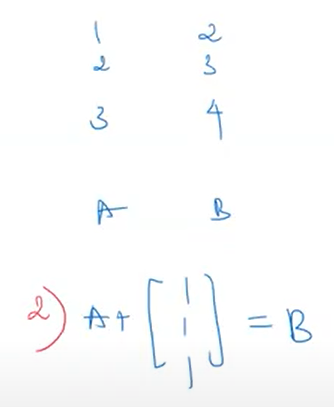 1 2
2 3
3 4
A B
2) A+ [ 1
1
1 ] = B